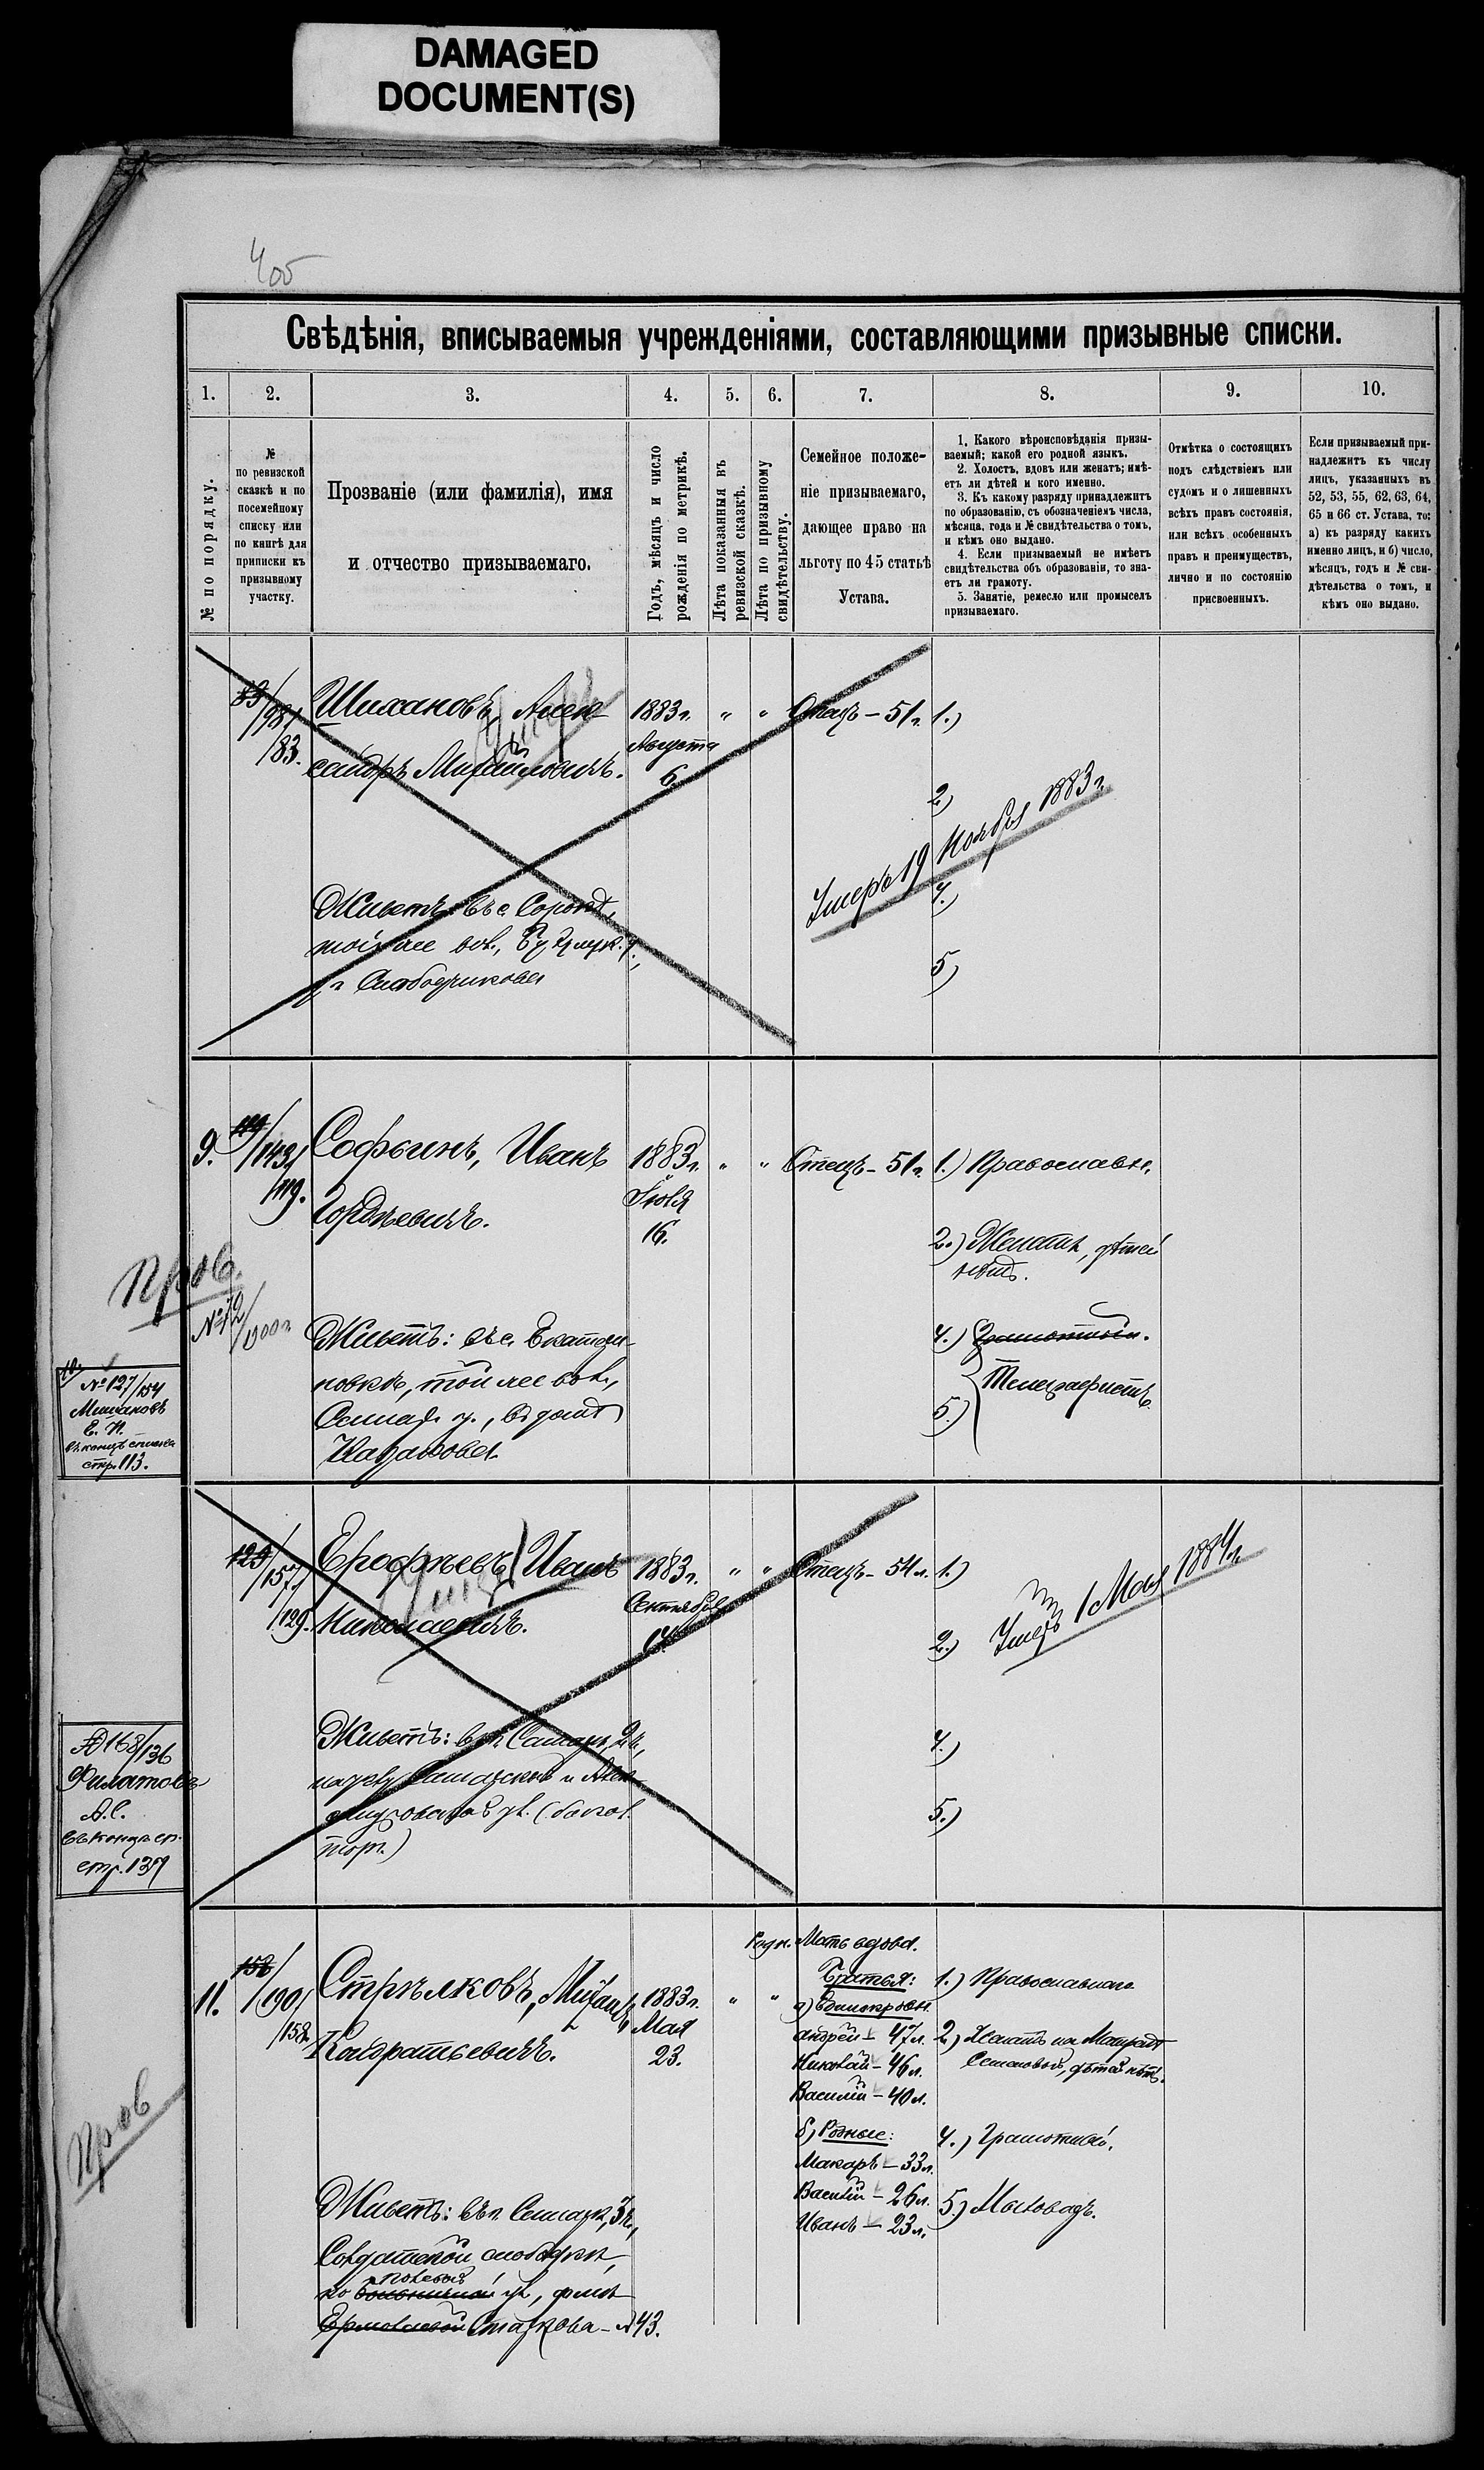 DAMAGED
DOCUMENT(S)
4об
Свѣдѣнія, вписываемыя учрежденіями, составляющими призывные списки.
1.
2.
3.
4.
5.
6.
7.
8.
9.
10.
№ по порядку.
№
по ревизской
сказкѣ и по
посемейному
списку или
по книгѣ для
приписки къ
призывному
участку.
Прозваніе (или фамилія), имя
и отчество призываемаго.
Годъ, мѣсяцъ и число
рожденія по метрикѣ.
Лѣта показанныя въ
ревизской сказкѣ.
Лѣта по призывному
свидѣтельству.
Семейное положе-
ніе призываемаго,
дающее право на
льготу по 45 статьѣ
Устава.
1. Какого вѣроисповѣданія призы-
ваемый; какой его родной языкъ.
2. Холостъ, вдовъ или женатъ; имѣ-
етъ ли дѣтей и кого именно.
3. Къ какому разряду принадлежитъ
по образованію, съ обозначеніемъ числа,
мѣсяца, года и № свидѣтельства о томъ,
и кѣмъ оно выдано.
4. Если призываемый не имѣетъ
свидѣтельства объ образованіи, то зна-
етъ ли грамоту.
5. Занятіе, ремесло или промыселъ
призываемаго.
Отмѣтка о состоящихъ
подъ слѣдствіемъ или
судомъ и о лишенныхъ
всѣхъ правъ состоянія,
или всѣхъ особенныхъ
правъ и преимуществъ,
лично и по состоянію
присвоенныхъ.
Если призываемый при-
надлежитъ къ числу
лицъ, указанныхъ въ
52, 53, 55, 62, 63, 64,
65 и 66 ст. Устава, то:
а) къ разряду какихъ
именно лицъ, и б) число,
мѣсяцъ, годъ и № сви-
дѣтельства о томъ, и
кѣмъ оно выдано.
83/98/
/83.
Шихановъ, Алек-
сандръ Михайловичъ.
1883 г.
Августа
6.
" "
Отецъ - 51 г.
1.)
2)
Умеръ 19 Ноября 1883 г.
4.)
5)
Живетъ: въ с.
той же вол., у.,
9.
119/143/
/119.
Софьинъ, Иванъ
Гордѣевичъ.
1883 г.
Іюля
16.
" "
Отецъ - 51 г.
1.) Православн.
2.) Женатъ, дѣтей
нѣтъ.
4.) Грамотный.
5.) Телеграфистъ.
Пров.
№ 72/1900 г.
Живетъ: въ с. Екатери-
новкѣ, той же вол.,
Самар. у., въ домѣ
10.
№ 127/154
Мишаковъ
Е. И.
въ концѣ списка
стр. 113.
129/157/
/129.
Ерофѣевъ, Иванъ
Николаевичъ.
1883 г.
Сентября
14.
" "
Отецъ - 54 л.
1.)
2.)
Умеръ 1 Мая 1884 г.
4.)
5.)
Живетъ: въ г. Самарѣ, 2 ч.,
на углу Самарской и Алек-
сандровской ул.
№ 168/136
Филатовъ
А. С.
въ концѣ сп.
стр. 137
11.
158/190/
/158.
Стрѣлковъ, Михаилъ
Кондратьевичъ.
1883 г.
Мая
23.
" "
Родн. Мать вдова.
Братья:
а) Единокровн.
Андрей - 47 л.
Николай - 46 л.
Василій - 40 л.
б) Родные:
Макаръ - 33 л.
Василій - 26 л.
Иванъ - 23 л.
1.) Православнаго
2.) Женатъ на
Семеновой, дѣтей нѣтъ.
4.) Грамотный.
5.) Мыловаръ.
Пров
Живетъ: въ г. Самарѣ, 3 ч.,
Солдатской слободкѣ,
Полевой
по Больничной ул., домъ
Старкова - № 43.